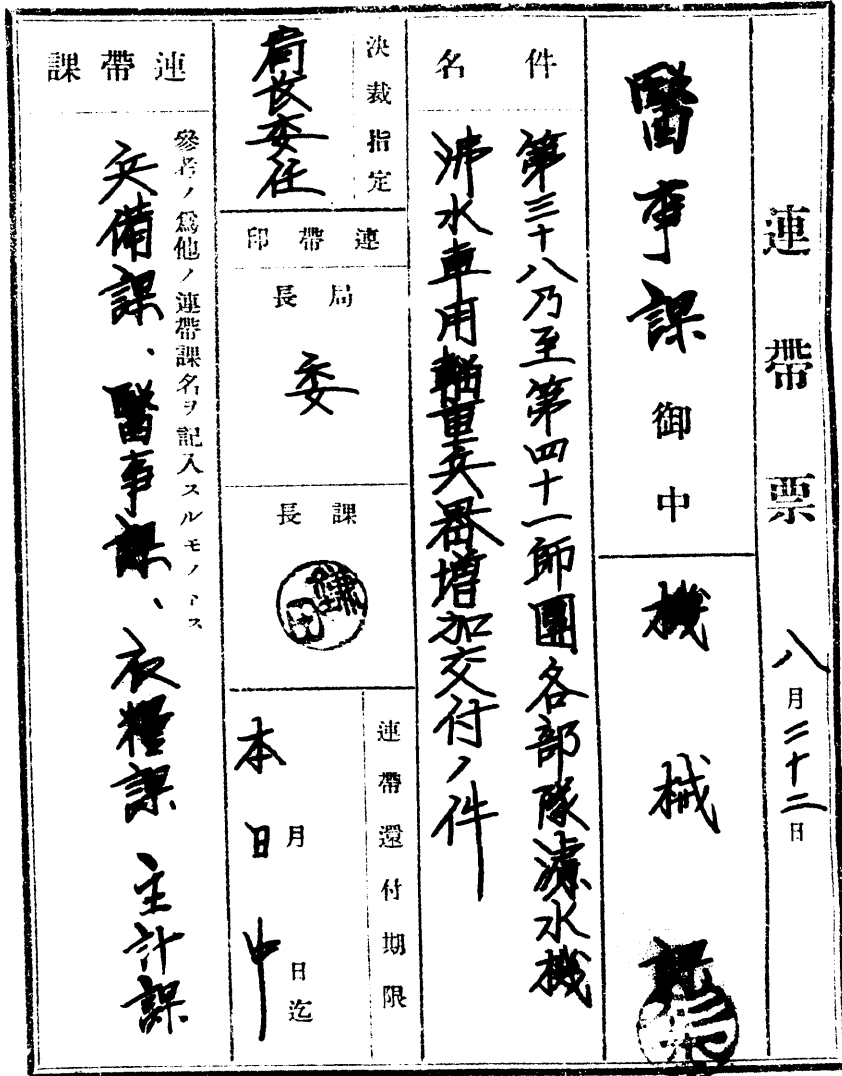 連帶票
八月二十二日
醫事課御中
機械課
件名
第三十八乃至第四十一師團各部隊濾水機
沸水車用輜重兵器増加交付ノ件
決裁指定
局長委任
連帶印
局長
委
課長
鎌田
連帶還付期限
本日中
月
日迄
連帶課
參考ノ爲他ノ連帶課名ヲ記入スルモノトス
兵備課、醫事課、衣糧課 主計課